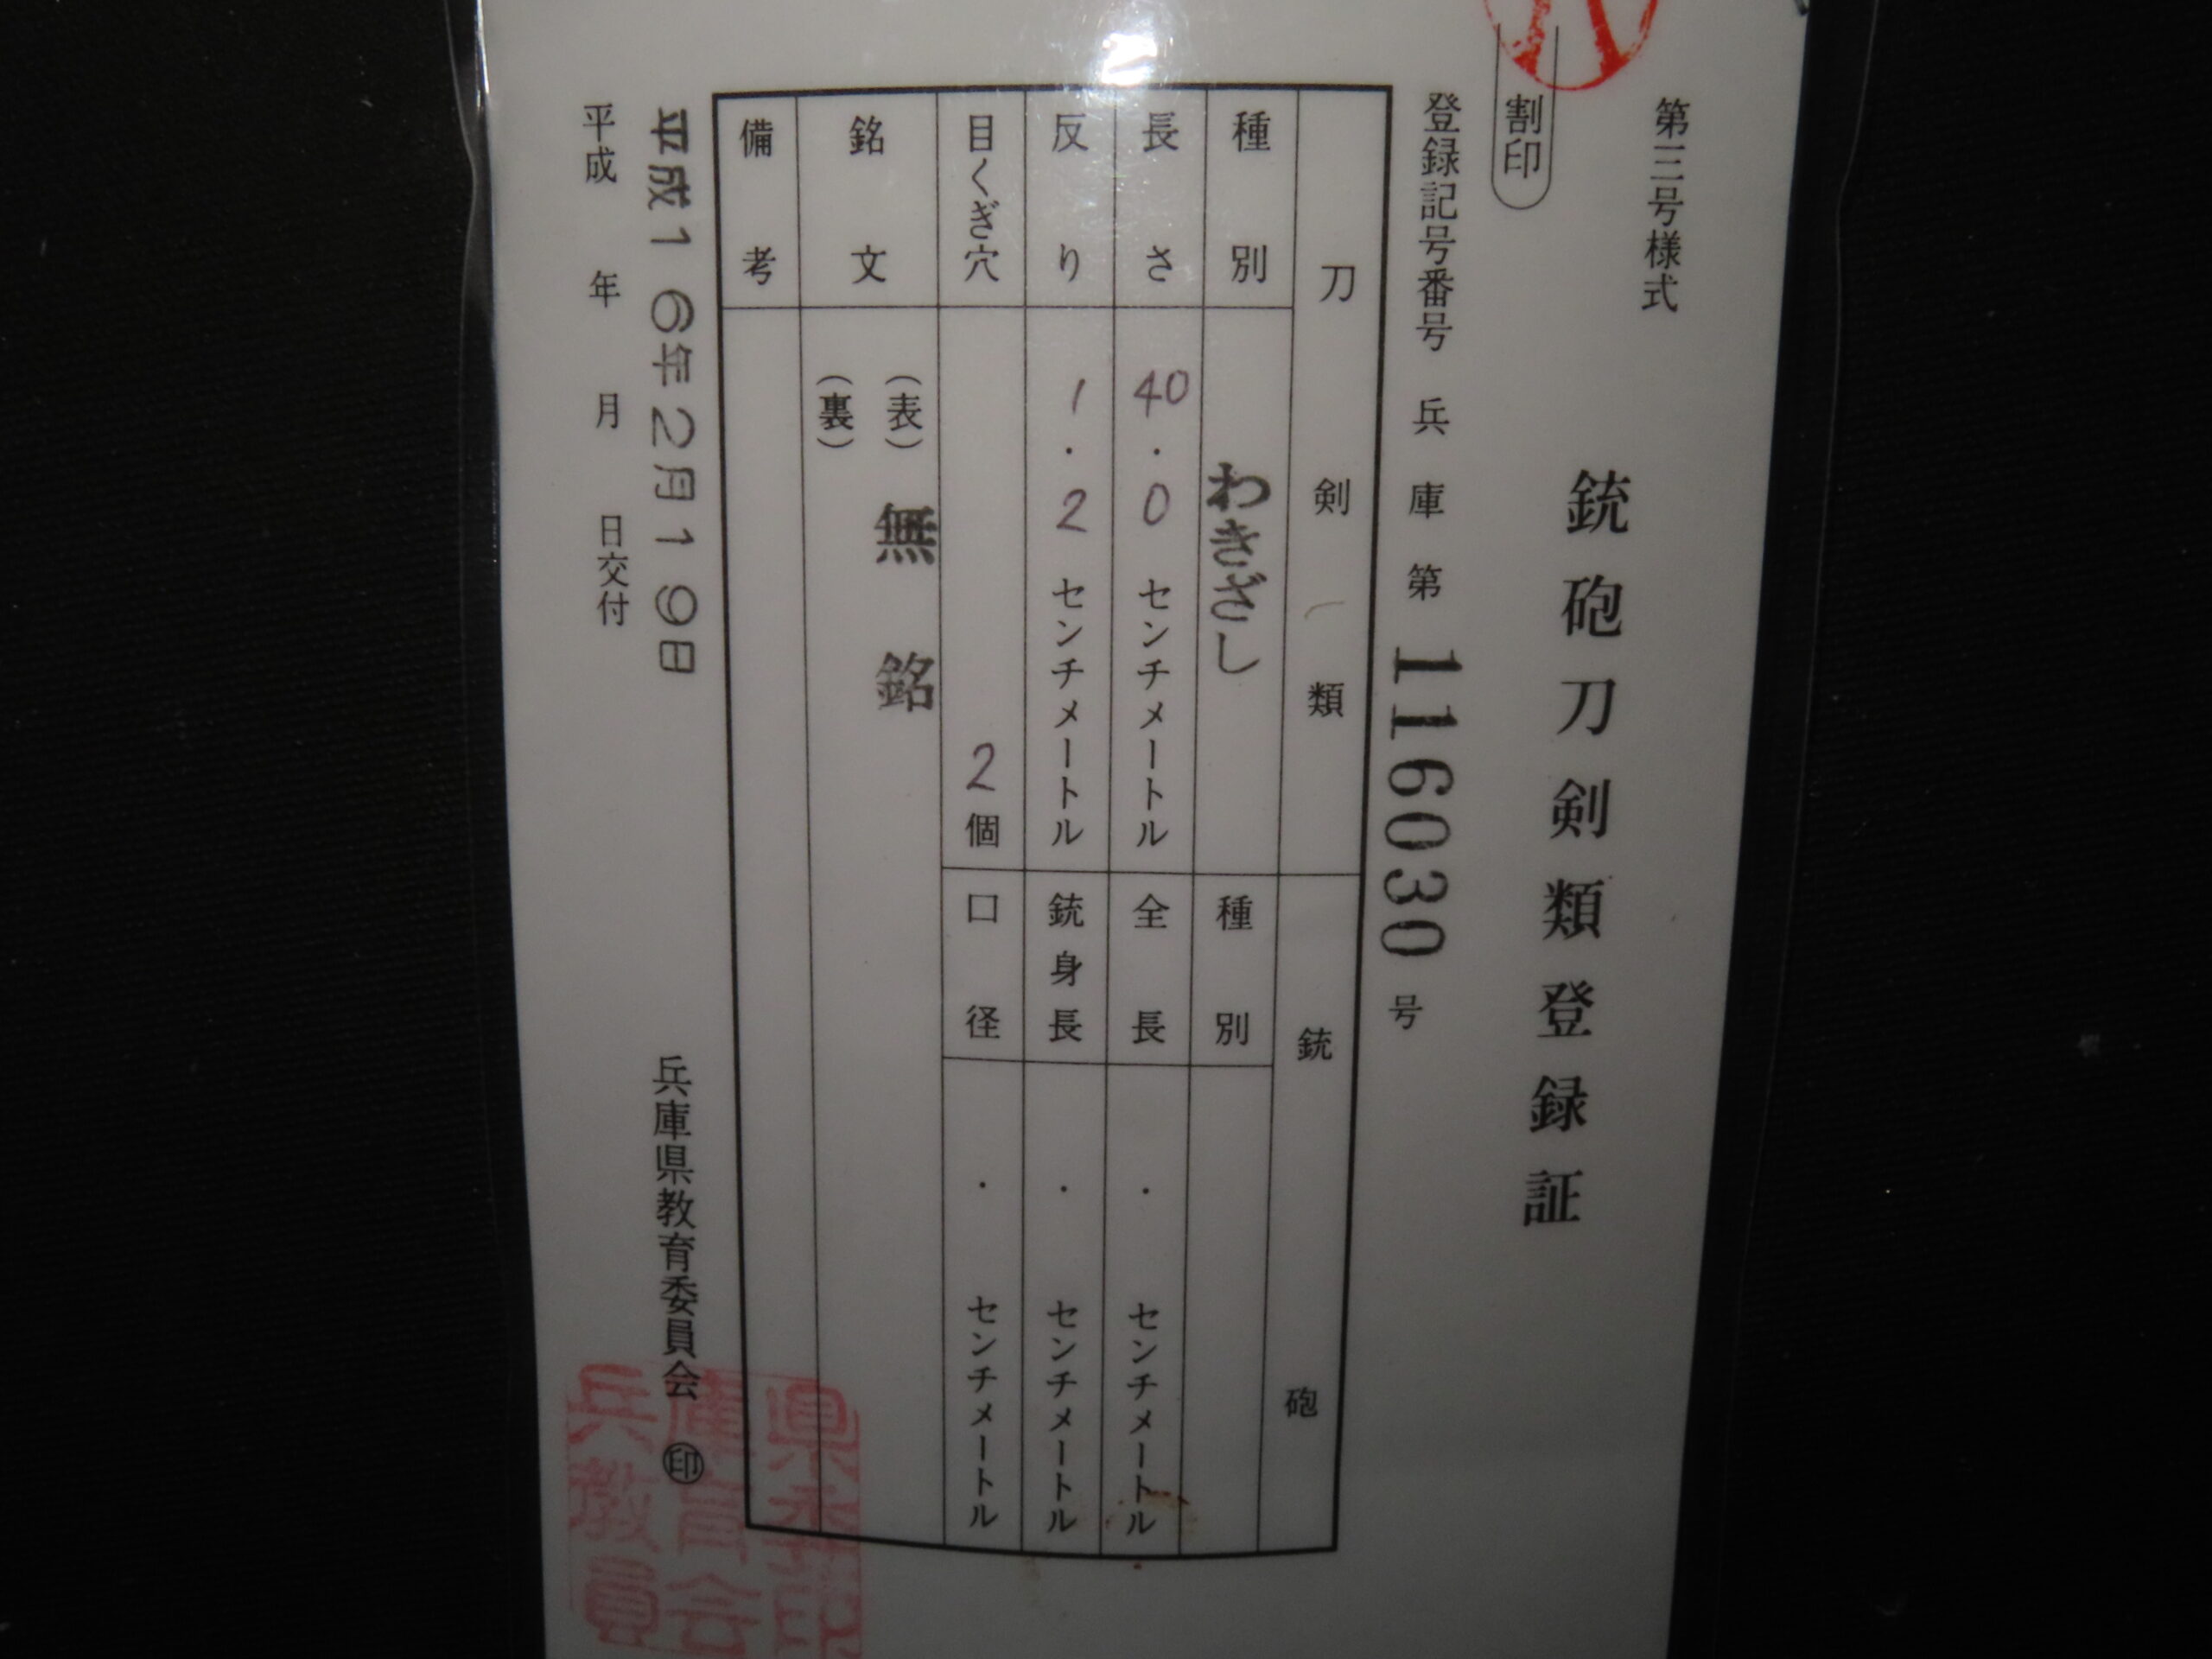 第三号様式
銃砲刀剣類登録証
割印
登録記号番号 兵庫第 116030 号
刀剣類
種別 わきざし
長さ 40.0 センチメートル
反り 1.2 センチメートル
目くぎ穴 2 個
銃砲
種別
全長 ・ センチメートル
銃身長 ・ センチメートル
口径 ・ センチメートル
銘文 (表) 無銘
(裏)
備考
平成16年2月19日
兵庫県教育委員会 ㊞
平成 年 月 日交付